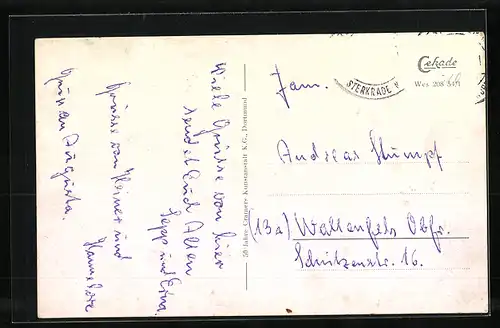 Viele Grüsse von hier
sendet Euch Allen
Sepp und Erna.
Grüsse von Heiner und
Hannelore
Gruss an Augusta.
50 Jahre Cramers Kunstanstalt K.G., Dortmund
Cekade
Wes 208
STERKRADE
Fam.
Andreas Stumpf
(13a) Wallenfels Obfr.
Schützenstr. 16.